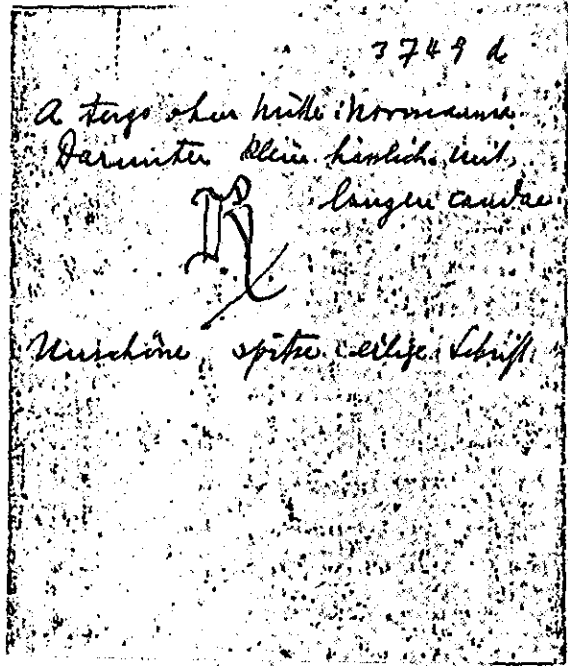 3749 d
A tergo oben mitte: Normannia.
Darunter klein hässlich mit
langer cauda:
R
Unschöne spitze eilige Schrift